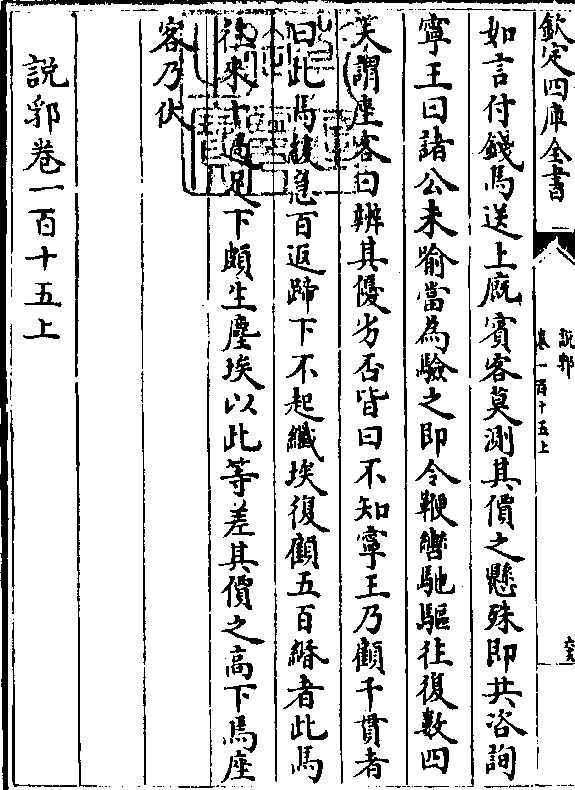 欽定四庫全書
說郛
卷一百十五上
如言付錢馬送上廐賓客莫測其價之懸殊即共咨詢
寧王曰諸公未喻當為驗之即令鞭轡馳驅往復數四
笑謂座客曰辨其優劣否皆曰不知寧王乃顧千貫者
曰此馬緩急百返蹄下不起纖埃復顧五百緡者此馬
往來十過足下頗生塵埃以此等差其價之高下焉座
客乃伏
說郛卷一百十五上